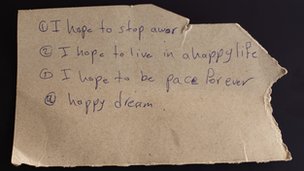 ① I hope to stop awar
② I hope to live in a happy life
③ I hope to be pace forever
④ happy dream